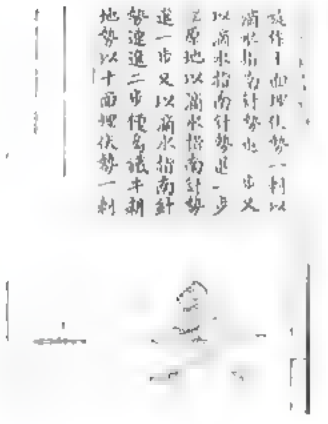 旋作十面埋伏勢一刺以
滴水指南針勢進一步又
以滴水指南針勢進一步
至原地以滴水指南針勢
進一步又以滴水指南針
勢速進二步便為鐵牛耕
地勢以十面埋伏勢一刺